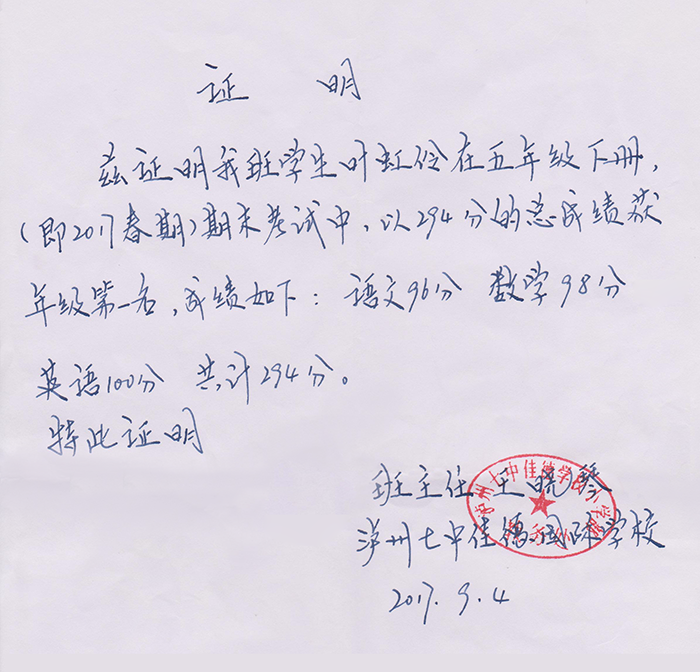 证 明
兹证明我班学生叶虹伶在五年级下册,
(即2017春期)期末考试中,以294分的总成绩获
年级第一名,成绩如下: 语文96分 数学98分
英语100分 共计294分。
特此证明
班主任 王晓琴
泸州七中佳德国际学校
2017.9.4
泸州七中佳德学校小学部